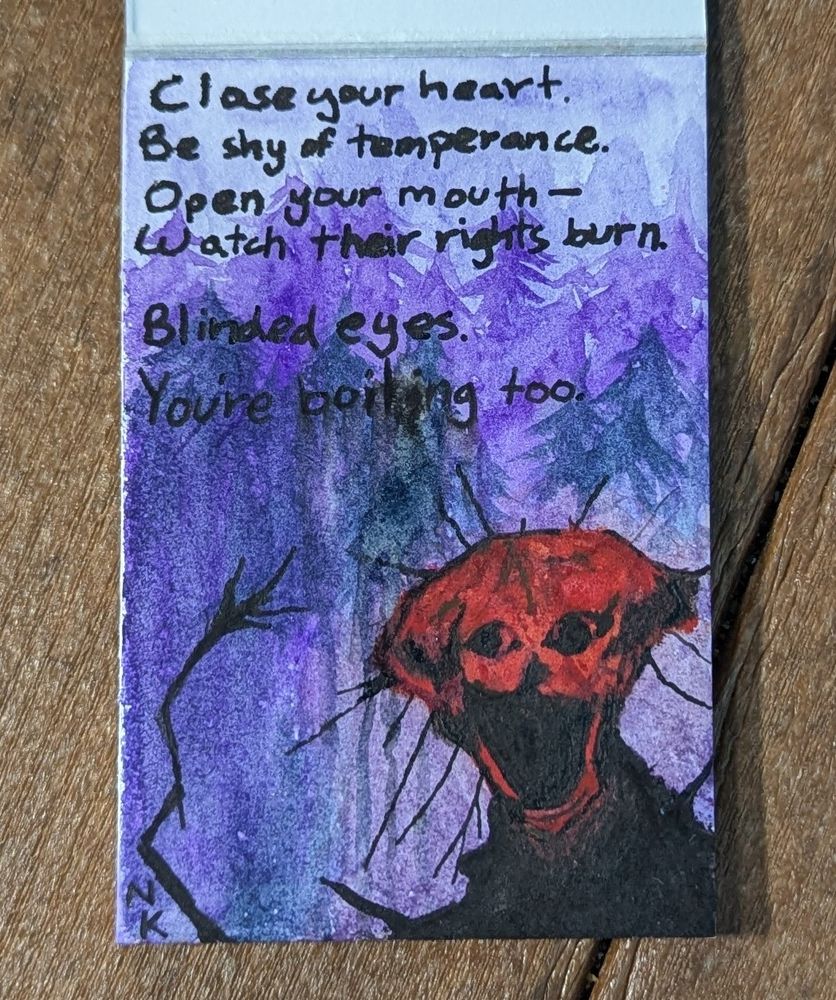 Close your heart.
Be shy of temperance.
Open your mouth—
Watch their rights burn.
Blinded eyes.
You're boiling too.
N
K